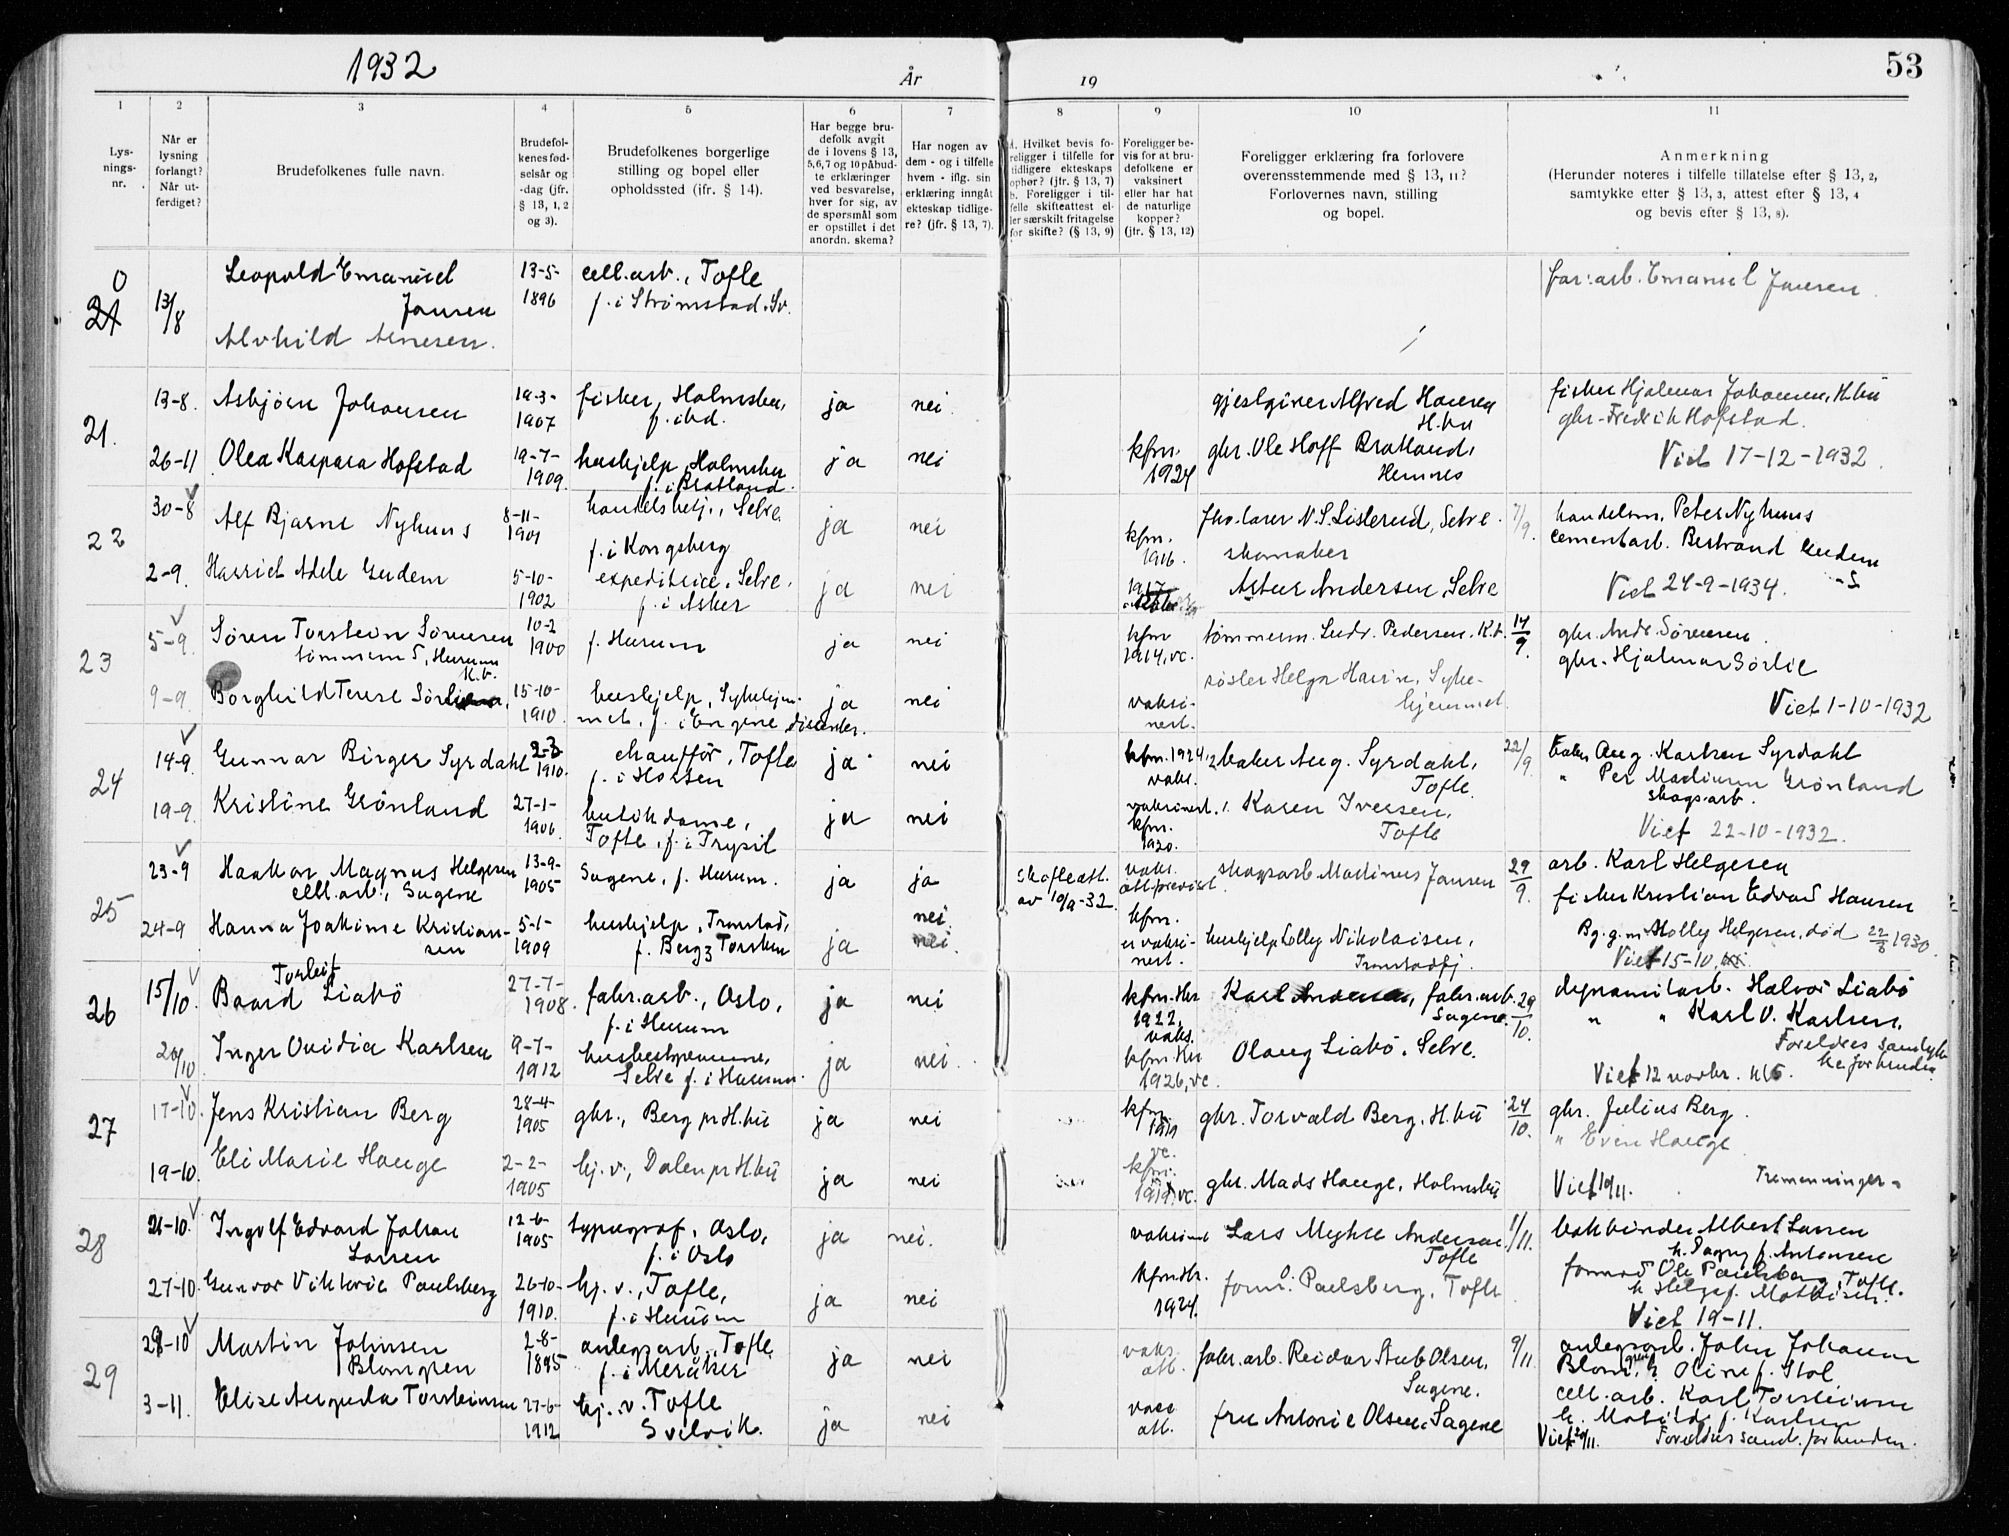 1932
År
19
53
1
2
3
4
5
6
7
8
9
10
11
Lys-
nings-
nr.
Når er
lysning
forlangt?
Når ut-
ferdiget?
Brudefolkenes fulle navn.
Brudefol-
kenes fød-
selsår og
-dag (jfr.
§ 13, 1, 2
og 3).
Brudefolkenes borgerlige
stilling og bopel eller
opholdssted (jfr. § 14).
Har begge bru-
defolk avgit
de i lovens § 13,
5,6,7 og 10 påbud-
te erklæringer
ved besvarelse,
hver for sig, av
de spørsmål som
er opstillet i det
anordn. skema?
Har nogen av
dem - og i tilfelle
hvem - iflg. sin
erklæring inngåt
ekteskap tidlige-
re? (jfr. § 13, 7).
a. Hvilket bevis fo-
religger i tilfelle for
tidligere ekteskaps
ophør? (jfr. § 13, 7)
b. Foreligger i til-
felle skifteattest el-
ler særskilt fritagelse
for skifte? (§ 13, 9)
Foreligger be-
vis for at bru-
defolkene er
vaksinert
eller har hat
de naturlige
kopper?
(jfr. § 13, 12)
Foreligger erklæring fra forlovere
overensstemmende med § 13, 11?
Forlovernes navn, stilling
og bopel.
Anmerkning
(Herunder noteres i tilfelle tillatelse efter § 13, 2,
samtykke efter § 13, 3, attest efter § 13, 4
og bevis efter § 13, 8).
13/8
Leopold Emanuel
Jansen
13-5-
1896
cell.arb., Tofte
f. i Strømstad. Sv.
far: arb. Emanuel Jansen
Alvhild Arnesen.
21.
13-8.
Asbjørn Johansen
19-3-
1907
fisker, Holmsbu,
f. ibd.
ja
nei.
gjestgiver Alfred Hansen
H.bu
fisker Hjalmar Johansen, H.bu
gbr. Fredrik Hofstad.
26-11
Olea Kaspara Hofstad
19-7-
1909.
hushjelp, Holmsbu
f. i Bratland.
ja
nei
kfm.
1924
gbr. Ole Hoff Bratland,
Hemnes
Viet 17-12-1932.
22
30-8
Alf Bjarne Nyhuus
8-11-
1901
handelsbetj., Selve
f. i Kongsberg
ja
nei
kfm.
1916.
N. S. Lislerud, Selve.
7/9.
handelsm. Peter Nyhuus
cementarb. Bertrand Gudem
2-9.
Harriet Adele Gudem
5-10-
1902
expeditrice, Selve.
f. i Asker
ja
nei
1917
skomaker
Artur Andersen, Selve
Viet 24-9-1934.
23
5-9.
Søren Torstein Sørensen
tømmerm S, Hurum
K.v.
10-2
1900
f. Hurum
ja
nei
kfm
1914, vc.
tømmerm. Ludv. Pedersen. K.v.
14/9.
gbr. Andr. Sørensen.
gbr. Hjalmar Sørlie
9-9.
Borghild Terese Sørlie
15-10-
1910.
hushjelp, Sykehjem-
met, f. i Engene
ja
nei
vaksi-
nert.
søster Helga Havin, Syke-
hjemmet.
Viet 1-10-1932
24
14-9.
Gunnar Birger Syrdahl
2-3
1910.
chauffør, Tofte
f. i Horten
ja
nei
kfm. 1924
vaks.
baker Aug. Syrdahl,
Tofte.
22/9.
baker Aug. Karlsen Syrdahl
" Per Martinsen Grønland
skogsarb.
19-9.
Kristine Grønland
27-1-
1906.
butikdame,
Tofte, f. i Trysil
ja
nei
vaksinert.
kfm.
1920.
Karen Iversen,
Tofte
Viet 22-10-1932.
25
23-9
Haakon Magnus Helgesen
cell. arb., Sagene
13-9-
1905
Sagene, f. Hurum.
ja
ja
Skifteatt.
av 10/9-32.
vaks.
att.
skogsarb Martinus Jansen
29/9.
arb. Karl Helgesen
fisker Kristian Edvard Hansen
24-9
Hanna Joakime Kristian-
sen
5-1-
1909
hushjelp, Tronstad,
f. Berg, Torsken
ja
nei
nei.
kfm.
er vaksi-
nert.
hushjelp Lolly Nikolaisen,
Tronstadfj.
Bg. g. m. Holly Helgesen, død 22/8 1930.
Viet 15-10
26
15/10.
Baard Torleif Liabø
27-7-
1908.
fabr. arb., Oslo,
f. i Hurum
ja
nei
kfm. Hu
1922,
vaks.
Karl Andersen, fabr. arb.
Sagene.
29/10.
dynamitarb. Halvor Liabø
" " Karl O. Karlsen.
20/10
Inger Ovidia Karlsen
9-7-
1912
husbestyrerinne,
Selve f. i Hurum.
ja
nei.
kfm. Hu
1926, vc.
Olaug Liabø. Selve.
Foreldres samtyk-
ke forhinden.
Viet 12 novbr.
27
17-10.
Jens Kristian Berg
28-4-
1905
gbr., Berg pr H.bu
ja
nei
kfm.
vc.
gbr. Torvald Berg, H.bu
24/10.
gbr. Julius Berg.
" Even Hauge
19-10.
Eli Marie Hauge
2-2-
1905
hj. v., Dalen pr H.bu
ja
nei
kfm.
vc.
gbr. Mads Hauge, Holmsbu
Viet 19/11.
Tremenninger
28
21-10.
Ingolf Edvard Johan
Larsen
12-6-
1905
typograf, Oslo,
f. i Oslo
ja
nei.
Lars Myhre Andersen
Tofte
1/11.
bokbinder Albert Larsen
27-10.
Gunvor Viktoria Paulsberg
26-10-
1910.
hj. v., Tofte,
f. i Hurum
ja
nei
1924.
form. O. Paulsberg, Tofte
formand Ole Paulsberg, Tofte.
h. Helga f. Mathisen.
Viet 19-11.
29
29-10
Martin Johnsen
Blomgren
2-8-
1895
anlegsarb., Tofte
f. i Meråker
ja
nei
vaks.
att.
fabr. arb. Reidar Stub Olsen,
Sagene.
9/11.
anlegsarb. John Johansen
Blomgren, h. Oline f. Stol
3-11.
Elise Augusta Torsteinsen
27-6-
1912
hj. v. Tofte
Svelvik.
ja
nei
vacc
att.
fru Antonie Olsen, Sagene
cell. arb. Karl Torsteinsen
h. Matilde f. Karlsen
Viet 20/11. Foreldres samt. forhinden.